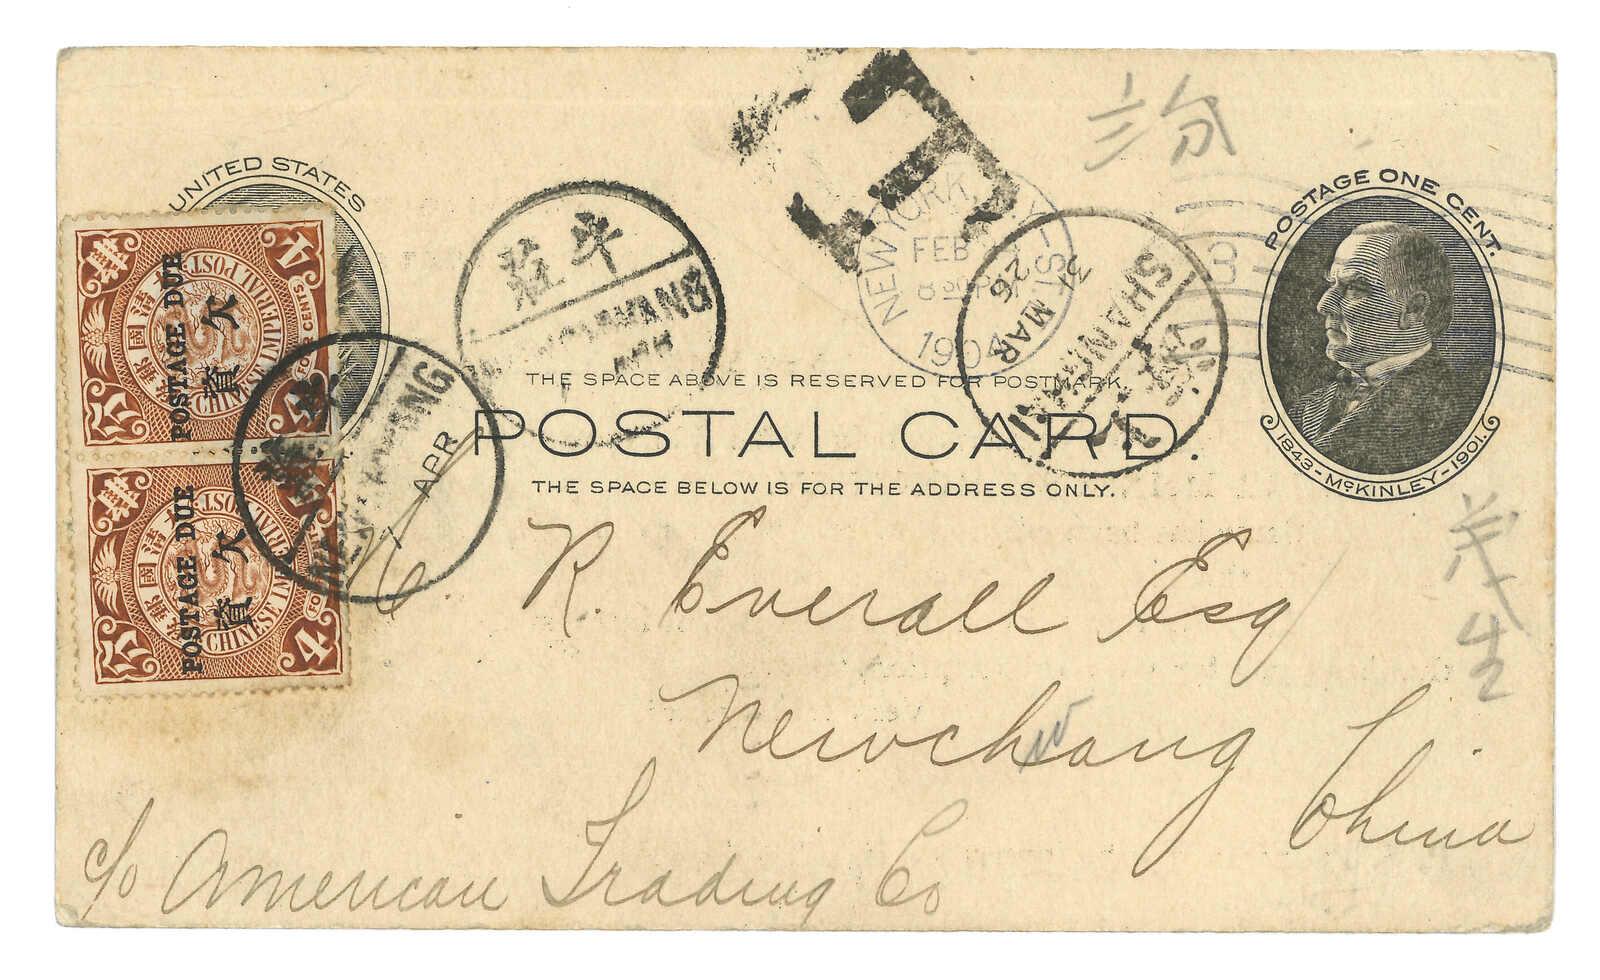 UNITED STATES
POSTAGE ONE CENT.
1843-McKINLEY-1901.
T
NEW YORK, N.Y.-ST.
FEB
8 30 P
1904
3
SHANGHAI
26 MAR
牛莊
NEWCHWANG
APR
NEWCHWANG
APR
CHINESE IMPERIAL POST
大清國郵政
POSTAGE DUE
欠資
4
FOUR CENTS
CHINESE IMPERIAL POST
大清國郵政
POSTAGE DUE
欠資
4
分
THE SPACE ABOVE IS RESERVED FOR POSTMARK.
POSTAL CARD.
THE SPACE BELOW IS FOR THE ADDRESS ONLY.
R. Everall Esq
Newchang
China
c/o American Trading Co
茂生